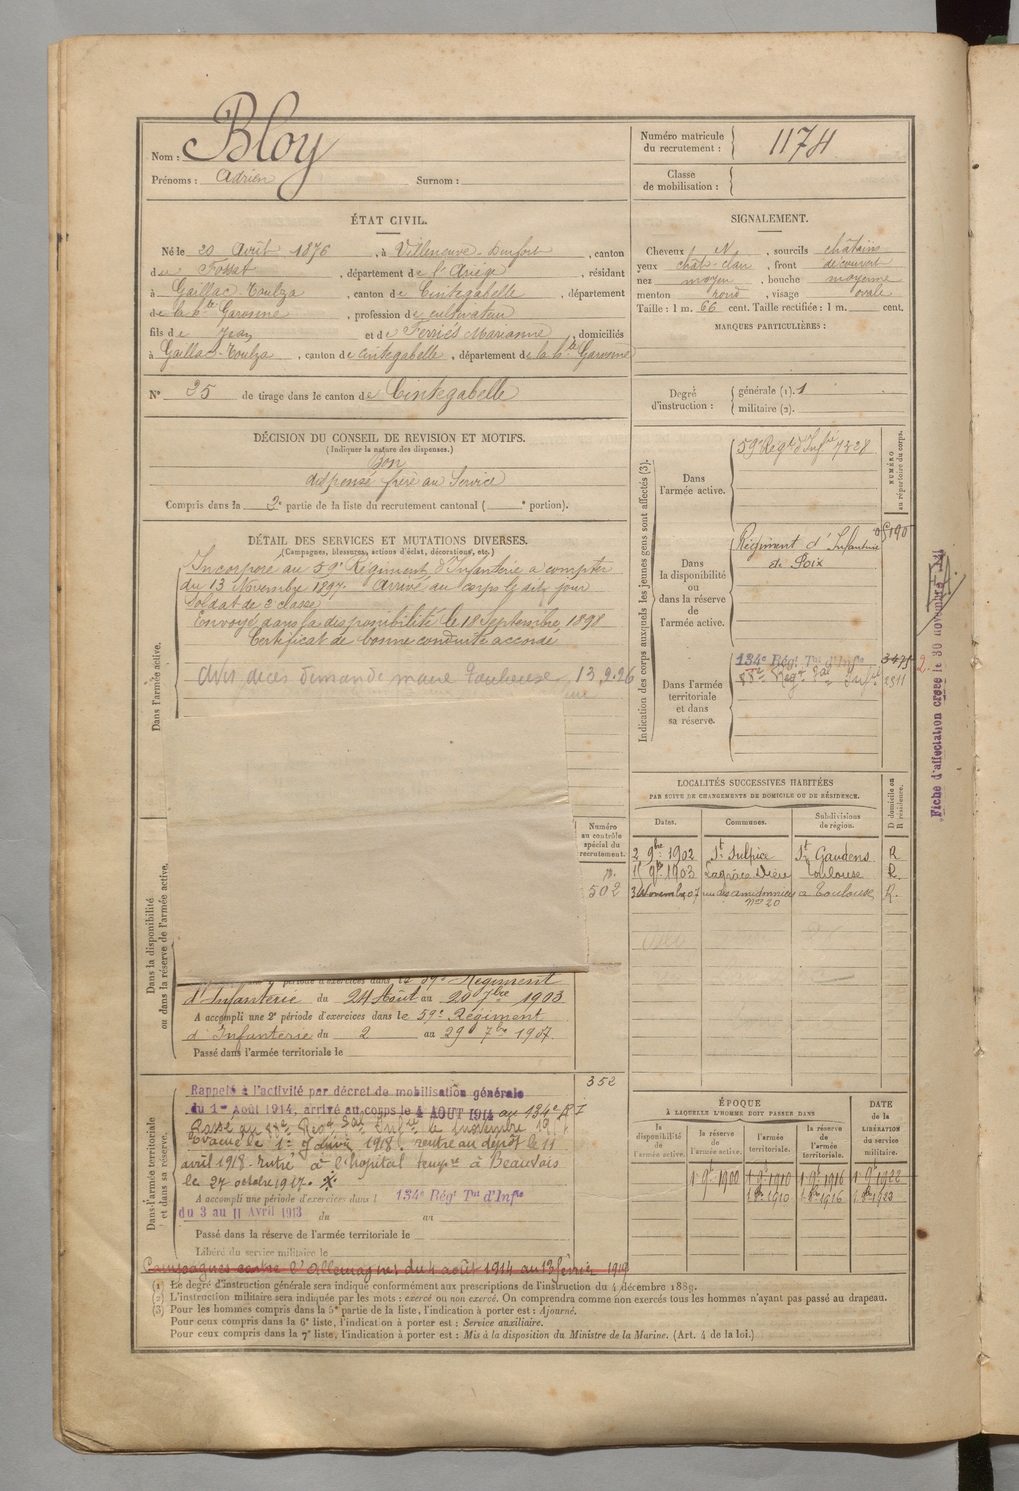 Nom : Bloy
Prénoms : Adrien Surnom :
Numéro matricule du recrutement : 1174
Classe de mobilisation :
ÉTAT CIVIL.
Né le 20 Avril 1876, à Villeneuve-Durfort, canton
de Fossat, département de l'Ariège, résidant
à Gaillac-Toulza, canton de Cintegabelle, département
de la hte Garonne, profession de cultivateur
fils de Jean et de Ferriés Marianne, domiciliés
à Gaillac-Toulza, canton de Cintegabelle, département de la hte Garonne
N° 25 de tirage dans le canton de Cintegabelle
SIGNALEMENT.
Cheveux N, sourcils châtains
yeux chât-clair, front découvert
nez moyen, bouche moyenne
menton rond, visage ovale
Taille : 1 m. 66 cent. Taille rectifiée : 1 m. cent.
MARQUES PARTICULIÈRES :
Degré d'instruction : générale (1). 1
militaire (2).
DÉCISION DU CONSEIL DE REVISION ET MOTIFS.
(Indiquer la nature des dispenses.)
Bon
dispensé frère au Service
Compris dans la 2e partie de la liste du recrutement cantonal ( e portion).
DÉTAIL DES SERVICES ET MUTATIONS DIVERSES.
(Campagnes, blessures, actions d'éclat, décorations, etc.)
Dans l'armée active.
Incorporé au 59e Régiment d'Infanterie à compter
du 13 Novembre 1897. Arrivé au corps le dit jour
Soldat de 2e classe
Envoyé dans la disponibilité le 18 Septembre 1898
Certificat de bonne conduite accordé
Avis décès demandé maire Toulouse 13.9.26
Dans la disponibilité ou dans la réserve de l'armée active.
Numéro au contrôle spécial du recrutement.
502
période d'exercices dans le 59e Régiment
d'Infanterie du 24 Août au 20 7bre 1903
A accompli une 2e période d'exercices dans le 59e Régiment
d'Infanterie du 2 au 29 7bre 1907.
Passé dans l'armée territoriale le
Dans l'armée territoriale et dans sa réserve.
352
Rappelé à l'activité par décret de mobilisation générale
du 1er Août 1914, arrivé au corps le 4 AOUT 1914 au 134e RI
Passé au
Évacué le 1er 1918. rentré au dépôt le 11
avril 1918. Entré à l'hôpital tempre à Beauvais
le 27 octobre 1917.
A accompli une période d'exercices dans l 134e Régt Tal d'Infie
du 3 au 11 Avril 1913 du au
Passé dans la réserve de l'armée territoriale le
Libéré du service militaire le
Campagnes contre l'Allemagne : du 4 août 1914 au 13 février 1919
Indication des corps auxquels les jeunes gens sont affectés (3).
NUMÉRO au répertoire du corps.
Dans l'armée active.
59e Régt d'Infie 7328
Dans la disponibilité ou dans la réserve de l'armée active.
Régiment d'Infanterie
de Foix
Dans l'armée territoriale et dans sa réserve.
134e Régt Tal d'Infie
2311
Fiche d'affectation créée le 30 novembre 1921
LOCALITÉS SUCCESSIVES HABITÉES
PAR SUITE DE CHANGEMENTS DE DOMICILE OU DE RÉSIDENCE.
Dates. Communes. Subdivisions de région. D domicile ou R résidence.
2 9bre 1902 St Sulpice St Gaudens R
11 9bre 1903 Lagrâce Dieu Toulouse R.
3 Novembre 07 rue des amidonniers n° 20 à Toulouse R.
ÉPOQUE
À LAQUELLE L'HOMME DOIT PASSER DANS
DATE de la LIBÉRATION du service militaire.
la disponibilité de l'armée active. la réserve de l'armée active. l'armée territoriale. la réserve de l'armée territoriale.
1er 9bre 1900 1er 9bre 1910 1er 9bre 1916 1er 9bre 1922
1er 8bre 1910 1er 8bre 1916 1er 8bre 1923
(1) Le degré d'instruction générale sera indiqué conformément aux prescriptions de l'instruction du 4 décembre 1889.
(2) L'instruction militaire sera indiquée par les mots : exercé ou non exercé. On comprendra comme non exercés tous les hommes n'ayant pas passé au drapeau.
(3) Pour les hommes compris dans la 5e partie de la liste, l'indication à porter est : Ajourné.
Pour ceux compris dans la 6e liste, l'indication à porter est : Service auxiliaire.
Pour ceux compris dans la 7e liste, l'indication à porter est : Mis à la disposition du Ministre de la Marine. (Art. 4 de la loi.)